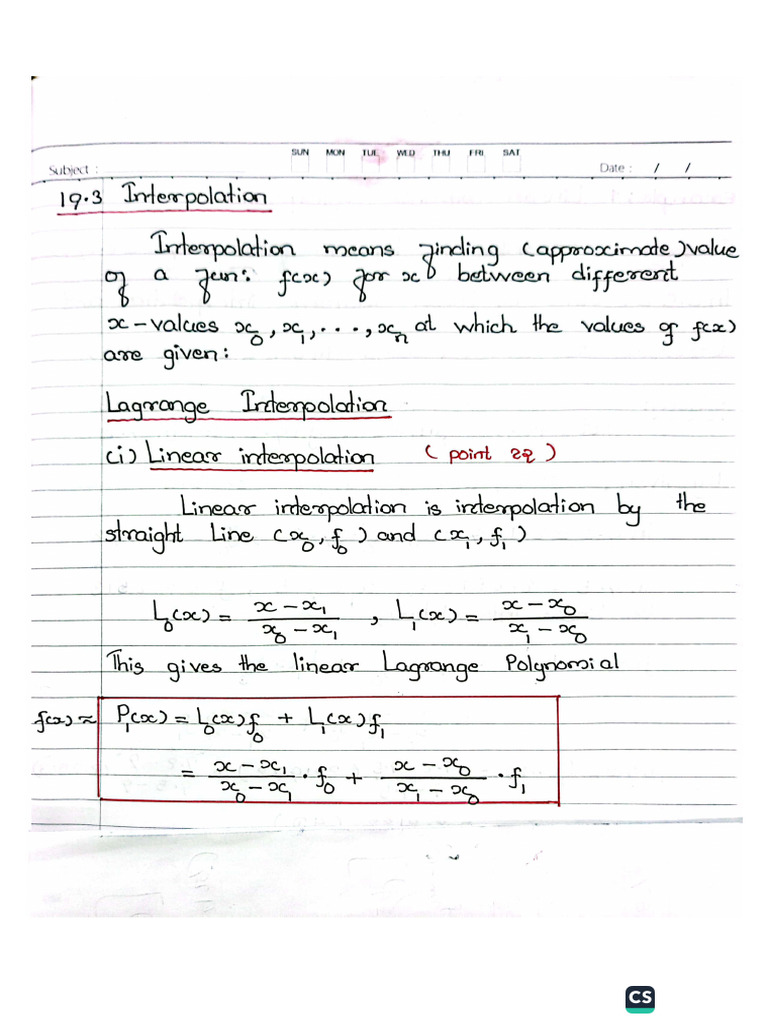 SUN MON TUE WED THU FRI SAT
Subject : Date : / /
19.3 Interpolation
Interpolation means finding (approximate) value
of a fun: f(x) for x between different
x-values x₀, x₁, ..., xₙ at which the values of f(x)
are given:
Lagrange Interpolation
(i) Linear interpolation (point 2નું)
Linear interpolation is interpolation by the
straight Line (x₀, f₀) and (x₁, f₁)
L₀(x) = (x - x₁)/(x₀ - x₁) , L₁(x) = (x - x₀)/(x₁ - x₀)
This gives the linear Lagrange Polynomial
f(x) ≈ P₁(x) = L₀(x)f₀ + L₁(x)f₁
= (x - x₁)/(x₀ - x₁) · f₀ + (x - x₀)/(x₁ - x₀) · f₁
CS